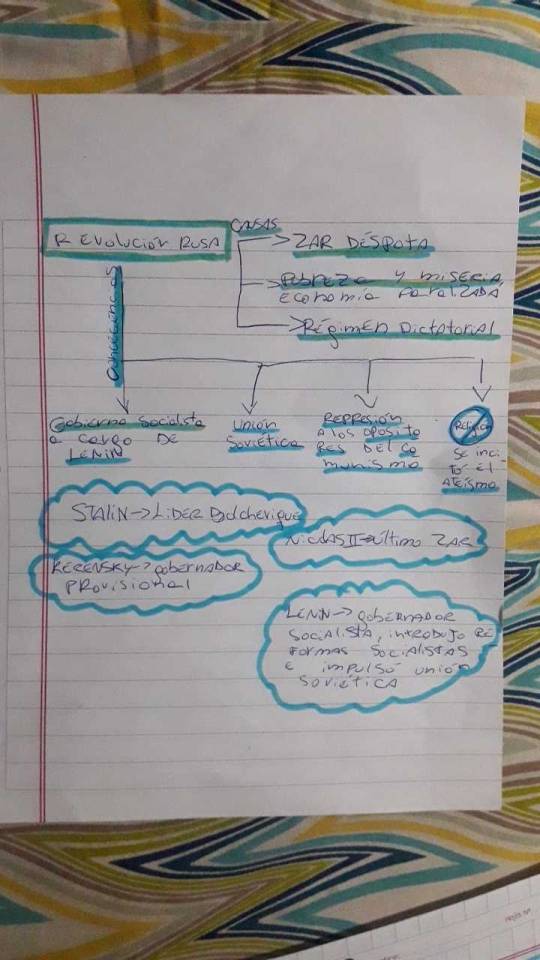 REvolución RUSA
CAUSAS
ZAR DÉSPOTA
Pobreza y miseria,
economía paralizada
Régimen Dictatorial
Gobierno Socialista
a cargo DE
LENIN
UNIÓN
Soviética
REPRESIÓN
A los oposito
RES DEL co
munismo
Religión
Se inci
tó el
ATEÍSMO
STALIN → LiDER Bolchevique
Nicolas II → último ZAR
KERENSKY → gobernador
PROvisional
LENIN → gobernador
socialista, introdujo re
formas socialistas
e impulsó unión
soviética